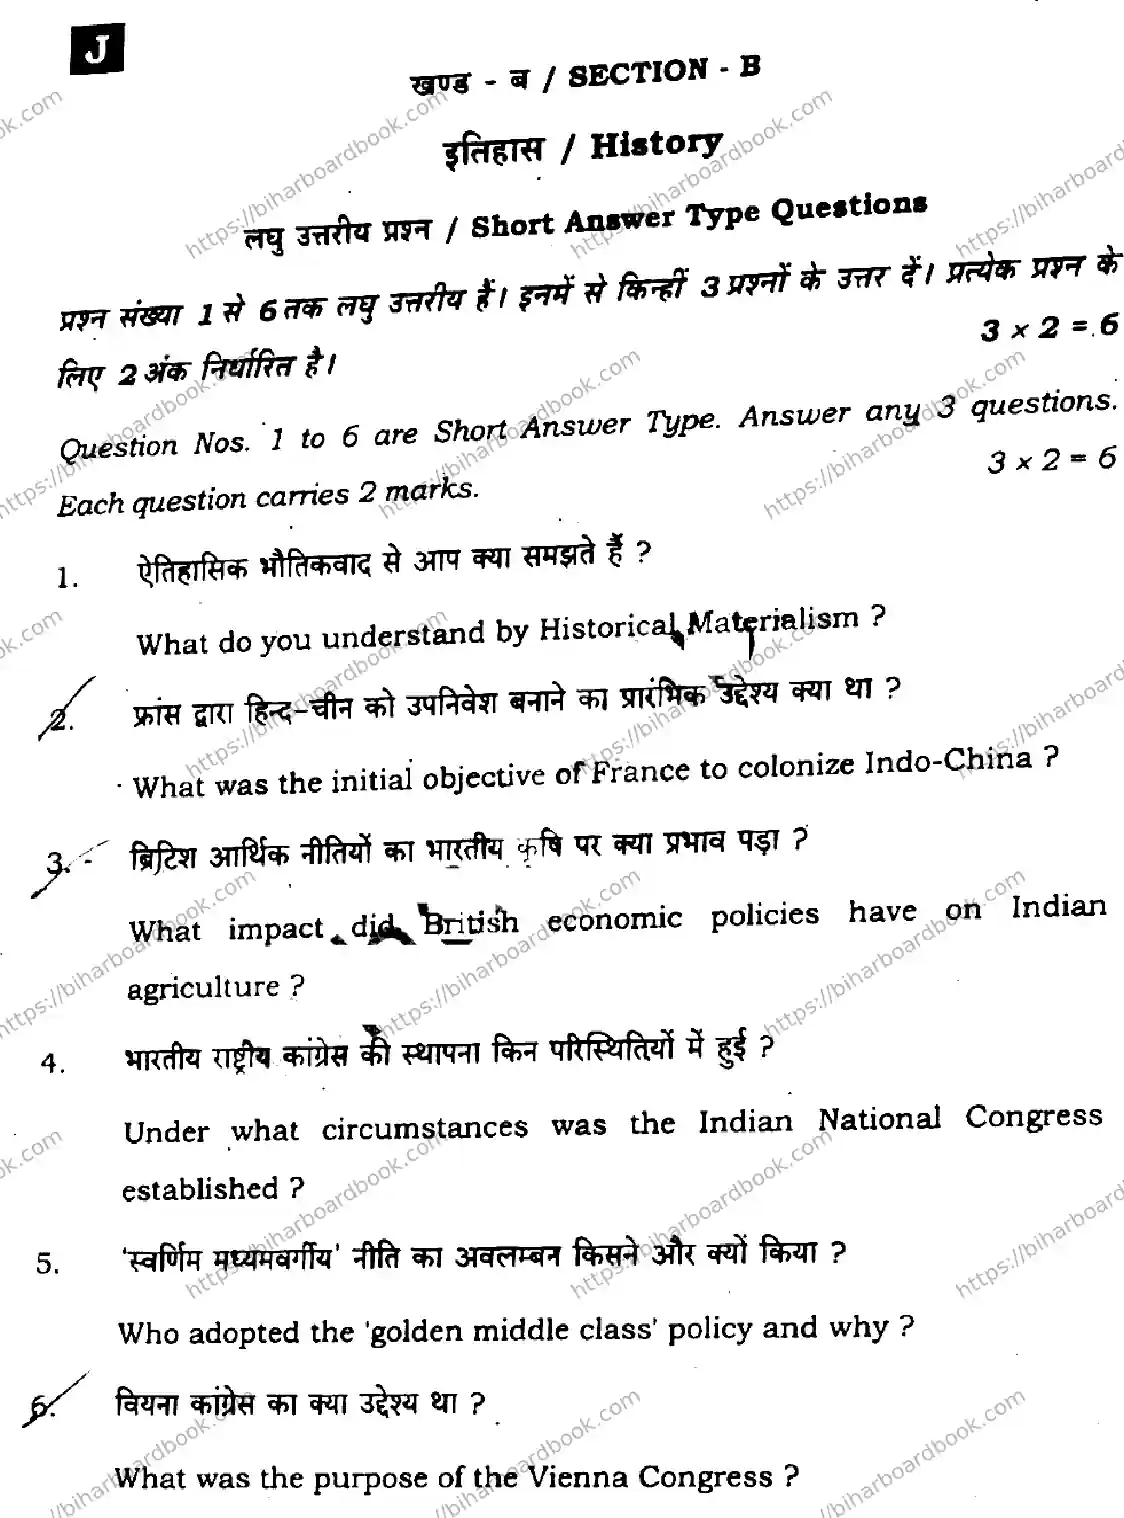 J
खण्ड - ब / SECTION - B
इतिहास / History
लघु उत्तरीय प्रश्न / Short Answer Type Questions
प्रश्न संख्या 1 से 6 तक लघु उत्तरीय हैं। इनमें से किन्हीं 3 प्रश्नों के उत्तर दें। प्रत्येक प्रश्न के
लिए 2 अंक निर्धारित है। 3 × 2 = 6
Question Nos. 1 to 6 are Short Answer Type. Answer any 3 questions.
Each question carries 2 marks. 3 × 2 = 6
1. ऐतिहासिक भौतिकवाद से आप क्या समझते हैं ?
What do you understand by Historical Materialism ?
2. फ्रांस द्वारा हिन्द-चीन को उपनिवेश बनाने का प्रारंभिक उद्देश्य क्या था ?
What was the initial objective of France to colonize Indo-China ?
3. ब्रिटिश आर्थिक नीतियों का भारतीय कृषि पर क्या प्रभाव पड़ा ?
What impact did British economic policies have on Indian
agriculture ?
4. भारतीय राष्ट्रीय कांग्रेस की स्थापना किन परिस्थितियों में हुई ?
Under what circumstances was the Indian National Congress
established ?
5. 'स्वर्णिम मध्यमवर्गीय' नीति का अवलम्बन किसने और क्यों किया ?
Who adopted the 'golden middle class' policy and why ?
6. वियना कांग्रेस का क्या उद्देश्य था ?
What was the purpose of the Vienna Congress ?
https://biharboardbook.com